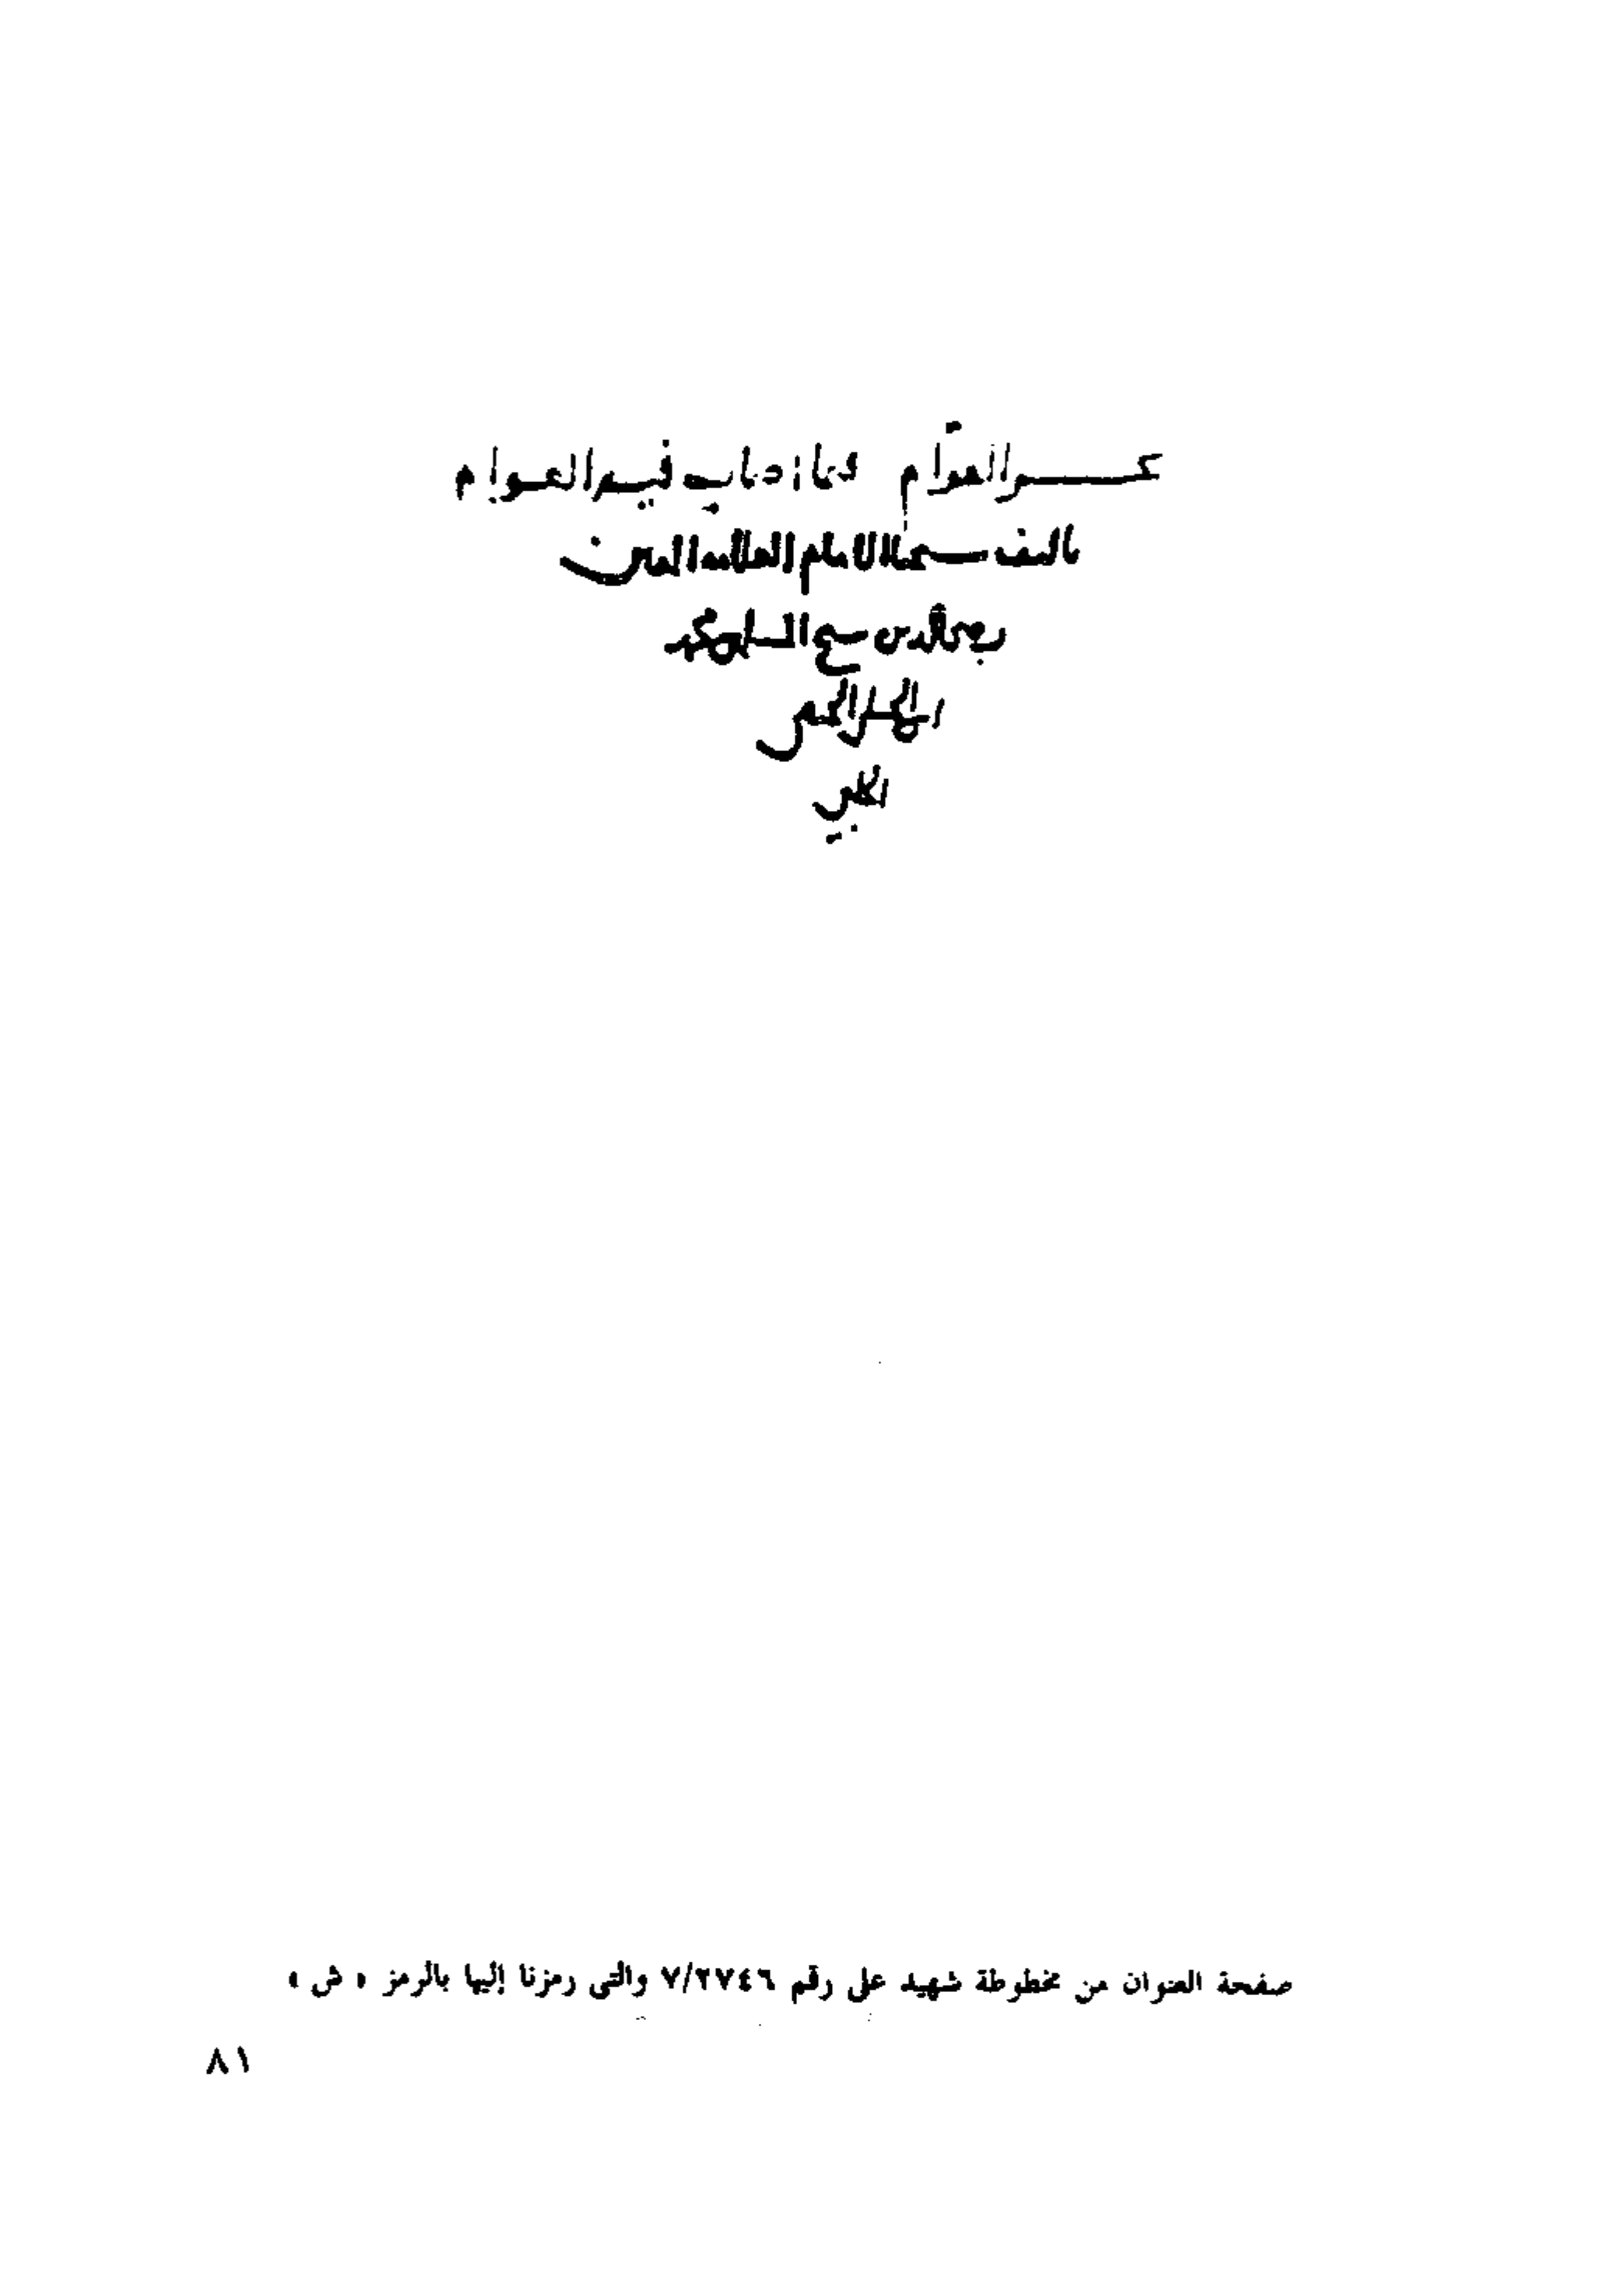 بحر العوّام فيما اصاب فيه العوام
تاليف شيخنا الامام العلامة
رضي الدين شيخ الاسلام محمد
الحنفي
الحلبي
صفحة العنوان من مخطوطة شهيد على رقم ٧/٢٧٤٦ والتى رمزنا إليها بالرمز « ش »
٨١